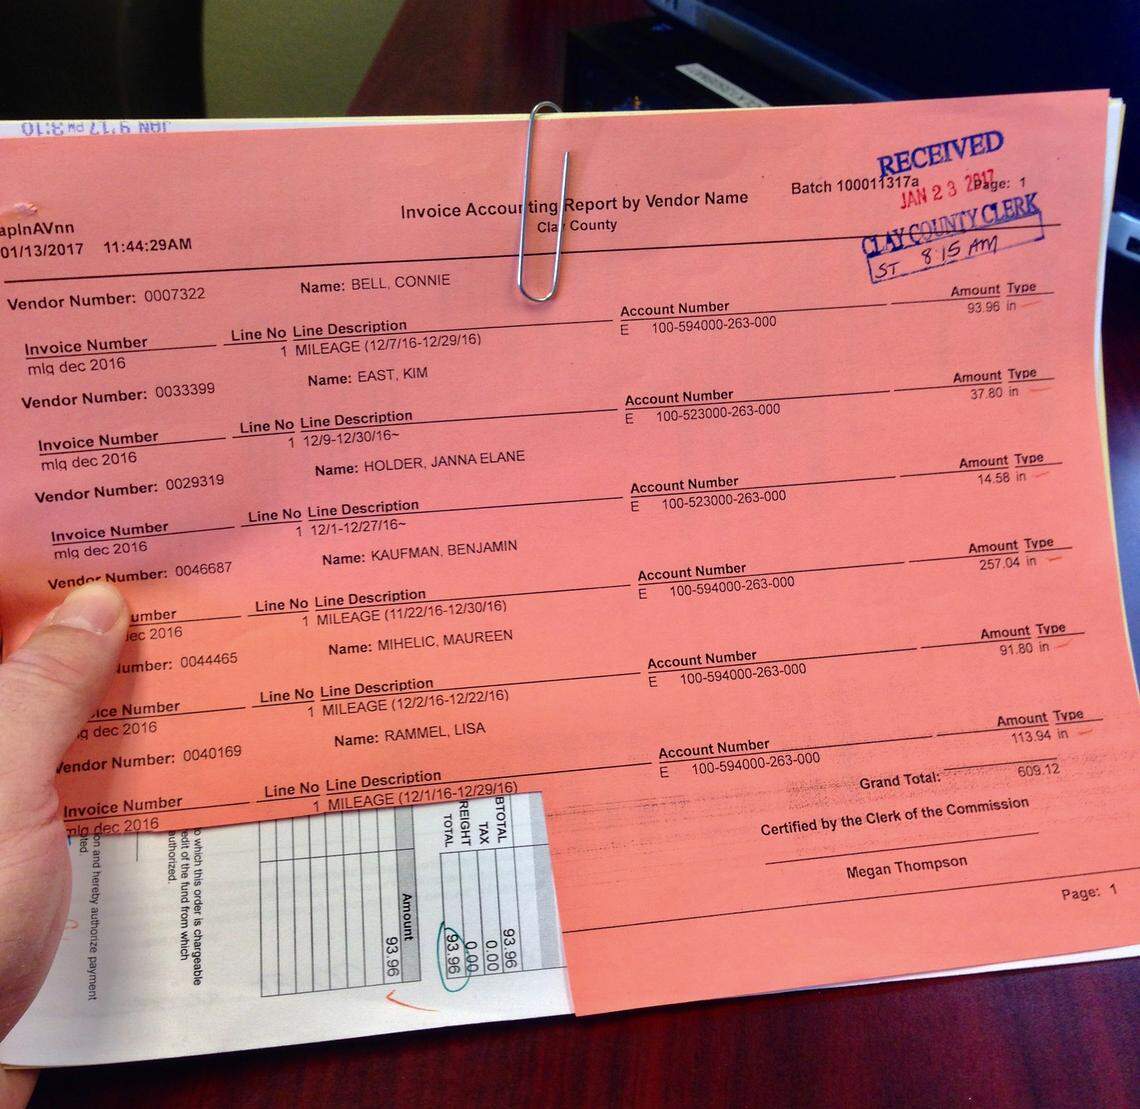 JAN 9 '17 PM 3:10
RECEIVED
JAN 23 2017
CLAY COUNTY CLERK
ST 8:15 AM
Batch 100011317a Page: 1
Invoice Accounting Report by Vendor Name
Clay County
apInAVnn
01/13/2017 11:44:29AM
Vendor Number: 0007322 Name: BELL, CONNIE
Invoice Number Line No Line Description Account Number Amount Type
mlg dec 2016 1 MILEAGE (12/7/16-12/29/16) E 100-594000-263-000 93.96 in
Vendor Number: 0033399 Name: EAST, KIM
Invoice Number Line No Line Description Account Number Amount Type
mlg dec 2016 1 12/9-12/30/16~ E 100-523000-263-000 37.80 in
Vendor Number: 0029319 Name: HOLDER, JANNA ELANE
Invoice Number Line No Line Description Account Number Amount Type
mlg dec 2016 1 12/1-12/27/16~ E 100-523000-263-000 14.58 in
Vendor Number: 0046687 Name: KAUFMAN, BENJAMIN
umber Line No Line Description Account Number Amount Type
dec 2016 1 MILEAGE (11/22/16-12/30/16) E 100-594000-263-000 257.04 in
umber: 0044465 Name: MIHELIC, MAUREEN
oice Number Line No Line Description Account Number Amount Type
g dec 2016 1 MILEAGE (12/2/16-12/22/16) E 100-594000-263-000 91.80 in
Vendor Number: 0040169 Name: RAMMEL, LISA
Invoice Number Line No Line Description Account Number Amount Type
mlg dec 2016 1 MILEAGE (12/1/16-12/29/16) E 100-594000-263-000 113.94 in
Grand Total: 609.12
Certified by the Clerk of the Commission
Megan Thompson
Page: 1
BTOTAL 93.96
TAX 0.00
REIGHT 0.00
TOTAL 93.96
Amount
93.96
o which this order is chargeable
edit of the fund from which
authorized.
on and hereby authorize payment
ted.